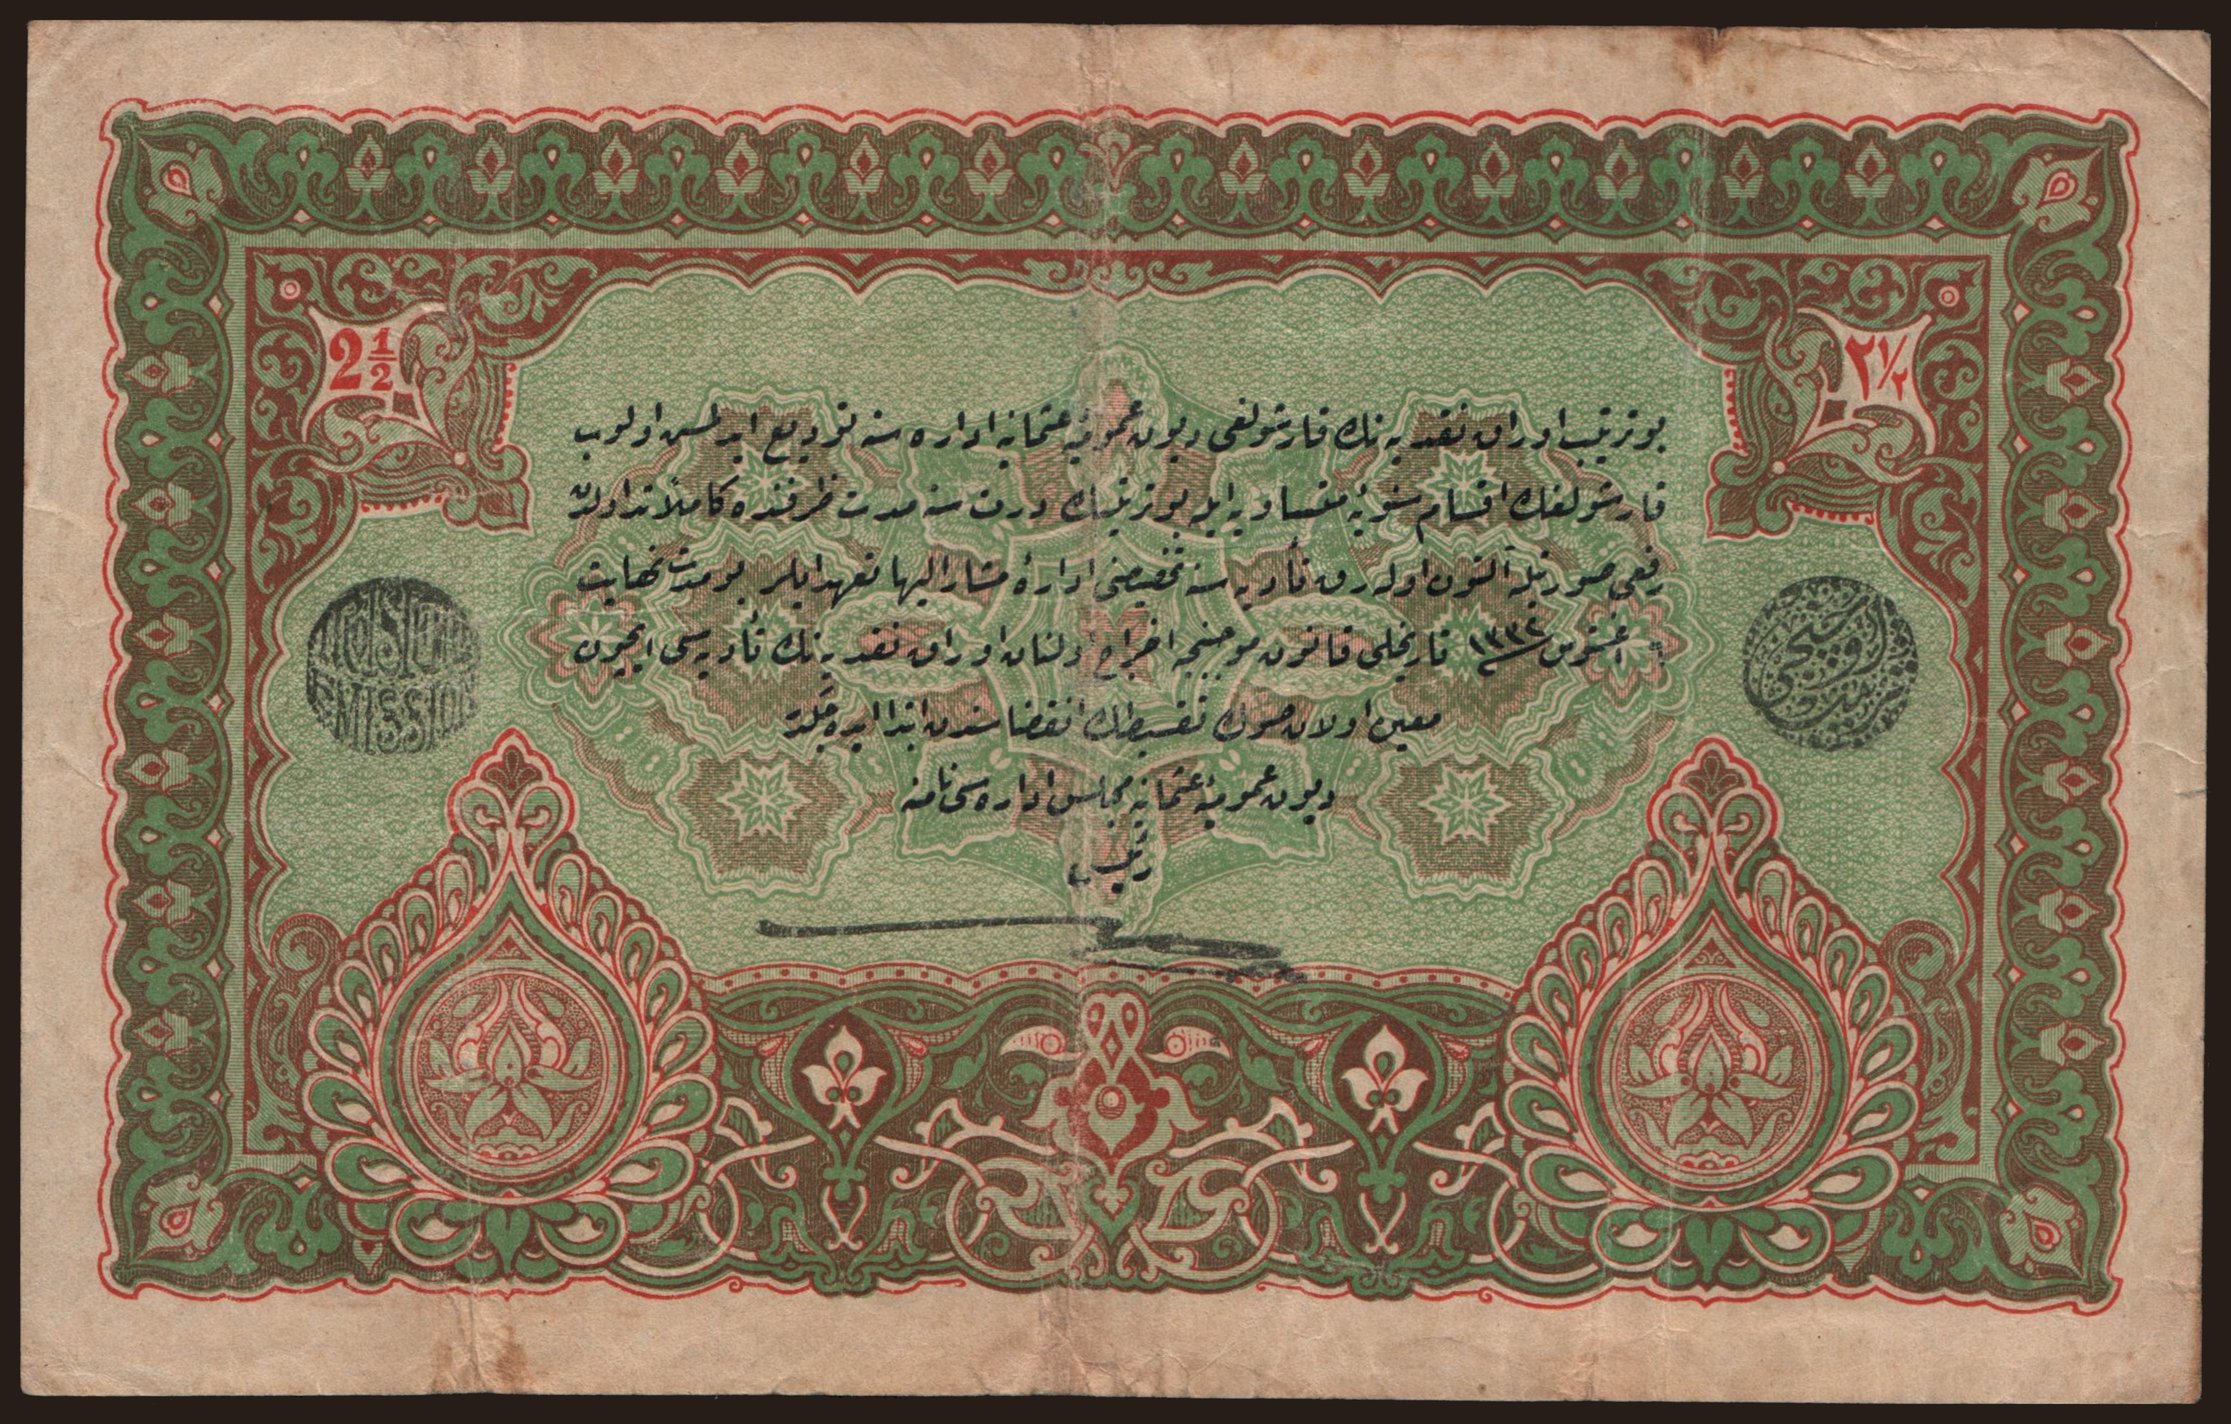 2 1/2
٢ ١/٢
بو ترتيب اوراق نقديه نك قارشولغى ديون عموميۀ عثمانيه اداره سنه توديع ايدلمش اولوب
قارشولغك اقسام سنويۀ متساويه ايله بو ترتيبك درت سنه مدت ظرفنده كاملاً تداولدن
رفعى صورتيله آلتون اوله رق تأديه سنه تخصيصنى ادارۀ مشار اليها تعهد ايلر بو مدت نهايت
اغستوس ١٣٣٢ تاريخلى قانون موجبنجه اخراج اولنان اوراق نقديه نك تأديه سى ايچون
معين اولان صوك تقسيطك انقضاسندن ابتدا ايده جكدر
ديون عموميۀ عثمانيه مجلس اداره سى نامنه
رئيس
EMISSION